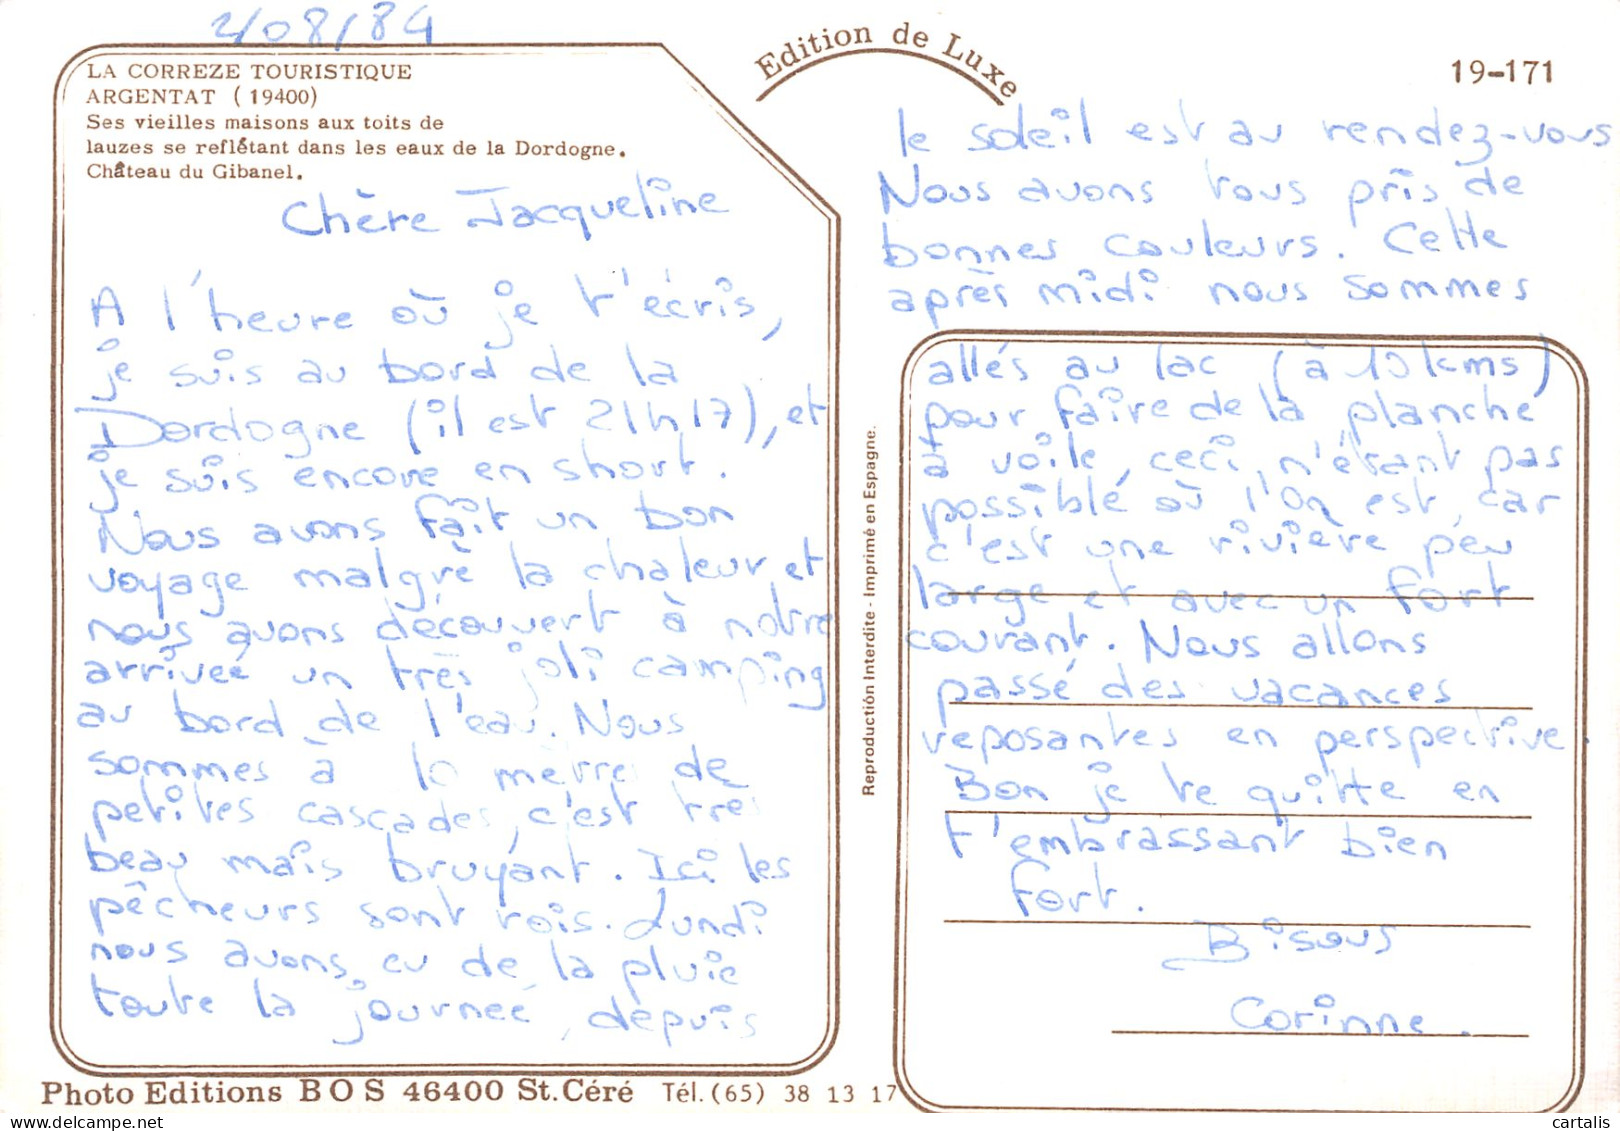 2/08/84
LA CORREZE TOURISTIQUE
ARGENTAT (19400)
Ses vieilles maisons aux toits de
lauzes se reflétant dans les eaux de la Dordogne.
Château du Gibanel.
Edition de Luxe
19-171
Chère Jacqueline
A l'heure où je t'écris,
je suis au bord de la
Dordogne (il est 21h17), et
je suis encore en short.
Nous avons fait un bon
voyage malgré la chaleur, et
nous avons découvert à notre
arrivée un très joli camping
au bord de l'eau. Nous
sommes à 10 mètres de
petites cascades, c'est très
beau mais bruyant. Ici les
pêcheurs sont rois. Lundi
nous avons eu de la pluie
toute la journeé, depuis
Reproduction Interdite - Imprimé en Espagne.
le soleil est au rendez-vous
Nous avons tous pris de
bonnes couleurs. Cette
après midi nous sommes
allés au lac (à 10 kms)
pour faire de la planche
à voile, ceci, n'étant pas
possible où l'on est, car
c'est une rivière peu
large et avec un fort
courant. Nous allons
passé des vacances
reposantes en perspective.
Bon je te quitte en
t'embrassant bien
fort.
Bisous
Corinne.
Photo Editions BOS 46400 St.Céré Tél.(65) 38 13 17
cartalis
delcampe.net